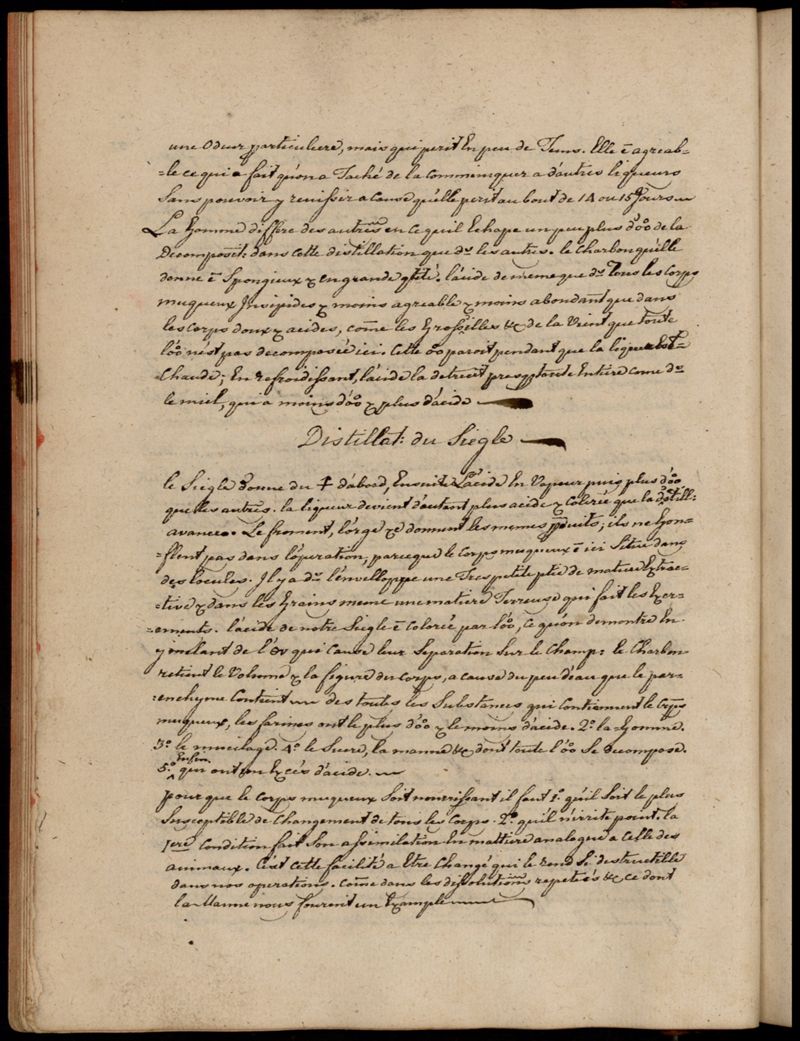 une Odeur particuliere, mais qui perit En peu de Tems. Elle ē agreab-
=le ce qui a fait qu'on a Taché de la communiquer a d'autres liqueurs
Sans pouvoir y reussir a cause qu'elle perit au bout de 14 ou 15 Jours
La Gomme differe des autres en ce quil Echape un peu plus d'oo de la
Decomposit: dans cette distillation que ds les autres. le Charbon qu'elle
donne ē Spongieux & en grande qtité. l'acide de meme que ds Tous les Corps
muqueux Insipides & moins agreable & moins abondant que dans
les corps doux & acides, come les Groseilles &c de la Vient que toute
l'oo n'est pas decomposée ici. Cette oo paroit pendant que la liqueur Est
Chaude; En refroidissant, l'acide la detruit presq toute Entiere come ds
le miel, qui a moins d'oo & plus d'acide
Distillat: du Siegle
le Siegle donne du d'abord, Ensuite l'acide En Vapeur puis plus d'oo
que les autres. la liqueur devient d'autant plus acide & Colorée que la distill:
avance. Le froment, l'orge &c donnent les memes produits; ils ne Gon-
=flent pas dans l'operation, parceque le Corps muqueux ē ici Situé dans
des locules. Il y a ds l'envelloppe une Tres petite ptie de matiere Extrac-
=tive & dans les Grains meme une matiere Terreuse qui fait les Excr-
=ements. l'acide de notre Siegle ē Colorée par l'oo, ce qu'on demontre En
y melant de l'Ev qui Cause leur Separation Sur le Champ: le Charbon
retient le Volume & la figure du Corps, a cause du peu d'eau que le par-
=enchyme Contient des toutes les Substances qui Contiennent le Corps
muqueux, les farines ont le plus d'oo & le moins d'acide. 2.º la Gomme.
3.º le mucilage. 4.º le Sucre, la manne &c dont toute l'oo Se decompose.
5.º Enfin qui ont un Excés d'acide.
pour que le Corps muqueux Soit nourrissant il faut 1.º qu'il Soit le plus
Susceptible de Changement de tous les Corps. 2.º qu'il n'irrite point. la
1ere condition fait Son assimilation En mattiere analogue a Celle des
animaux. C'est cette facilité a Etre Changé qui le rend Si destructible
dans nos operations. come dans les dissolutions repetées &c ce dont
la Manne nous fournit un Example